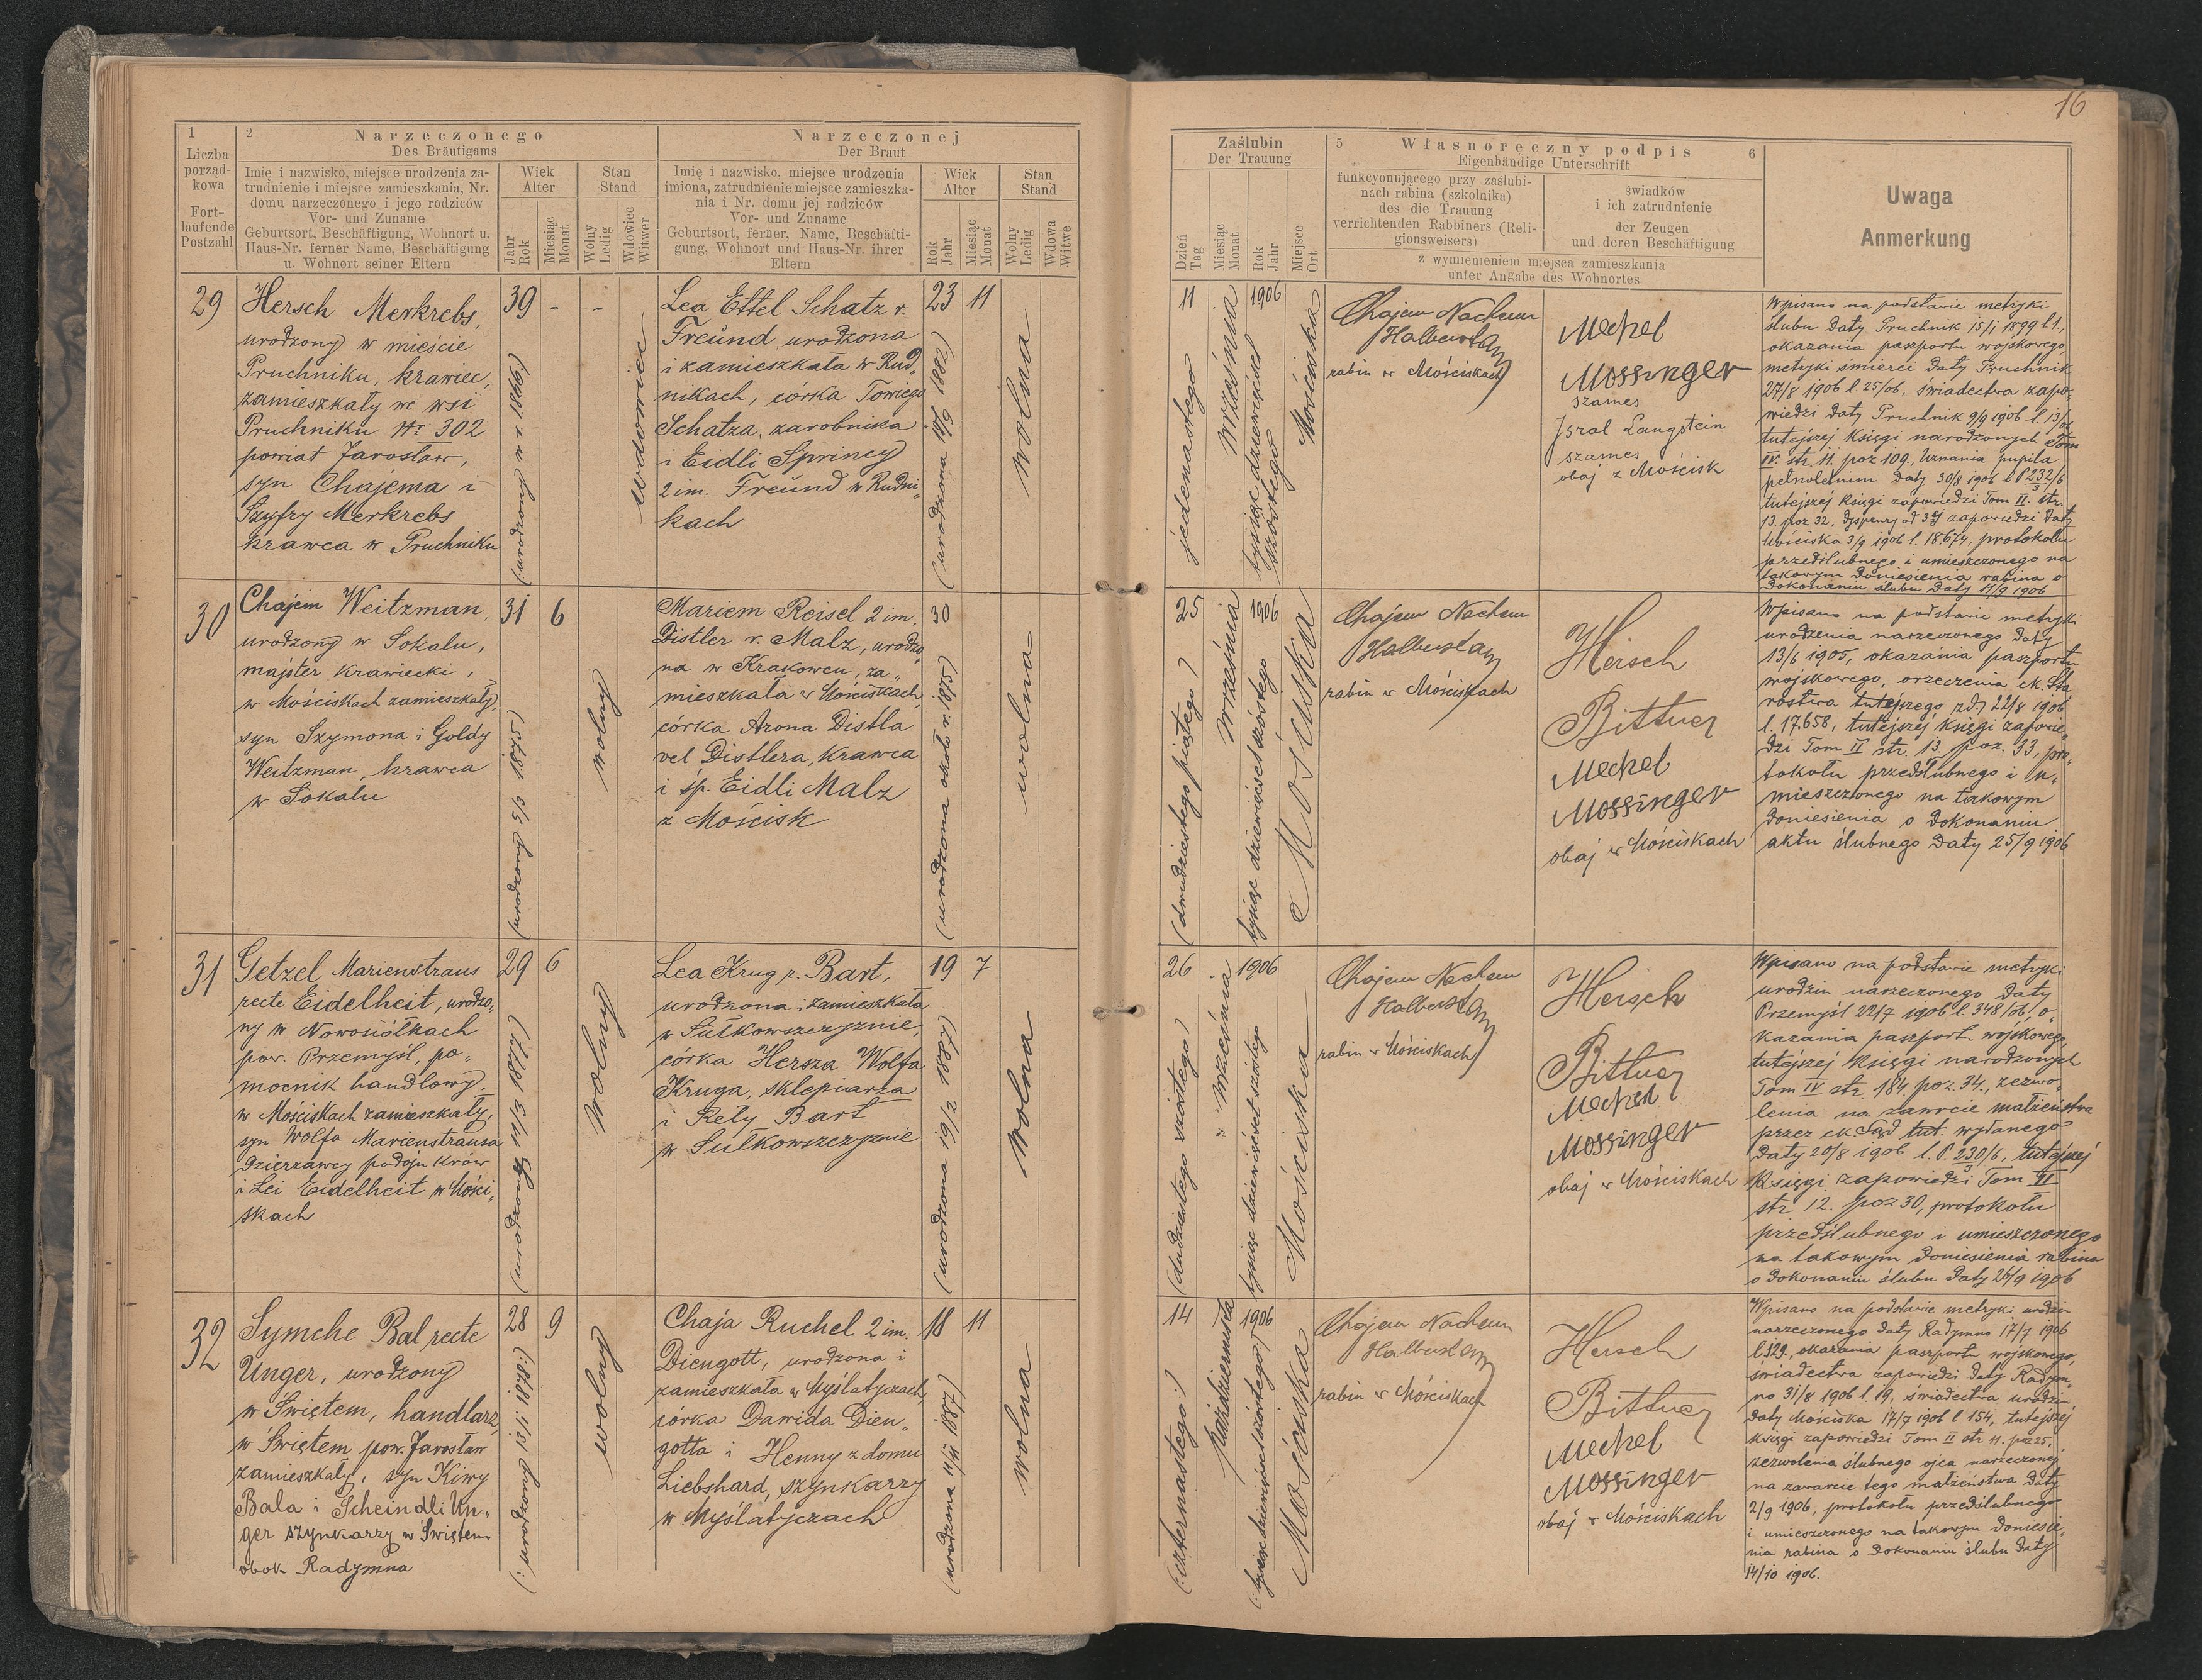 16
1
Liczba
porząd-
kowa
Fort-
laufende
Postzahl
2
Narzeczonego
Des Bräutigams
Imię i nazwisko, miejsce urodzenia za-
trudnienie i miejsce zamieszkania, Nr.
domu narzeczonego i jego rodziców
Vor- und Zuname
Geburtsort, Beschäftigung, Wohnort u.
Haus-Nr. ferner Name, Beschäftigung
u. Wohnort seiner Eltern
Wiek
Alter
Jahr
Rok
Miesiąc
Monat
Stan
Stand
Wolny
Ledig
Wdowiec
Witwer
Narzeczonej
Der Braut
Imię i nazwisko, miejsce urodzenia
imiona, zatrudnienie miejsce zamieszka-
nia i Nr. domu jej rodziców
Vor- und Zuname
Geburtsort, ferner, Name, Beschäfti-
gung, Wohnort und Haus-Nr. ihrer
Eltern
Wiek
Alter
Rok
Jahr
Miesiąc
Monat
Stan
Stand
Wolny
Ledig
Wdowa
Witwe
Zaślubin
Der Trauung
Dzień
Tag
Miesiąc
Monat
Rok
Jahr
Miejsce
Ort
5 Własnoręczny podpis 6
Eigenbändige Unterschrift
funkcyonującego przy zaślubi-
nach rabina (szkolnika)
des die Trauung
verrichtenden Rabbiners (Reli-
gionsweisers)
świadków
i ich zatrudnienie
der Zeugen
und deren Beschäftigung
z wymienieniem miejsca zamieszkania
unter Angabe des Wohnortes
Uwaga
Anmerkung
29
Hersch Merkrebs,
urodzony w mieście
Pruchniku, krawiec,
zamieszkały we wsi
Pruchniku Nr 302
powiat Jarosław,
syn Chajema i
Szyfry Merkrebs
krawca w Pruchniku
39 - -
(:urodzony w r. 1866:)
wdowiec
Lea Ettel Schatz r.
Freund, urodzona
i zamieszkała w Rud„
nikach, córka Towiego
Schatza, zarobnika
i Eidli Sprincy
2 im. Freund w Rudni„
kach
23 11
wolna
11
jedenastego
września
1906
tysiąc dziewięćset
szóstego
Mościska
Chajem Nachem
Halberstam
rabin w Mościskach
Mechel
Mossinger
szames
Isral Langstein
szames
obaj z Mościsk
Wpisano na podstawie metryki
ślubu daty Pruchnik 15/1 1899 l 1.,
okazania paszportu wojskowego,
metryki śmierci daty Pruchnik
27/8 1906 l. 25/06, świadectwa zapo„
wiedzi daty Pruchnik 9/9 1906 l. 13/06
tutejszej księgi narodzonych Tom
IV. str. 11. poz 109., Uznania pupila
pełnoletnim daty 30/8 1906 l. P 232/6
tutejszej księgi zapowiedzi Tom II. str.
13. poz 32, dyspenzy od 3ej zapowiedzi daty
Mościska 3/9 1906 l. 18674, protokołu
przedślubnego i umieszczonego na
takowym doniesienia rabina o
dokonaniu ślubu daty 11/9 1906
30
Chajem Weitzman,
urodzony w Sokalu,
majster krawiecki,
w Mościskach zamieszkały,
syn Szymona i Goldy
Weitzman, krawca
w Sokalu
31 6
(urodzony 5/3 1875)
wolny
Mariem Reisel 2 im.
Distler r. Malz, urodzo„
na w Krakowcu, za„
mieszkała w Mościskach,
córka Arona Distla
vel Distlera, krawca
i śp. Eidli Malz
z Mościsk
30
(urodzona około r. 1875)
wolna
25
(dwudziestego piątego)
września
1906
tysiąc dziewięćset szóstego
Mościska
Chajem Nachem
Halberstam
rabin w Mościskach
Hersch
Bittner
Mechel
Mossinger
obaj w Mościskach
Wpisano na podstawie metryki
urodzenia narzeczonego daty
13/6 1905, okazania paszportu
wojskowego, orzeczenia ck. Sta
rostwa tutejszego z d. 22/8 1906
l. 17.658, tutejszej księgi zapowie„
dzi Tom II str. 13. poz. 33, pro„
tokołu przedślubnego i u„
mieszczonego na takowym
doniesienia o dokonaniu
aktu ślubnego daty 25/9 1906
31
Getzel Marienstraus
recte Eidelheit, urodzo„
ny w Nowosiółkach
pow. Przemyśl, po„
mocnik handlowy,
w Mościskach zamieszkały,
syn Wolfa Marienstrausa
dzierzawcy podoju krów
i Lei Eidelheit w Mości„
skach
29 6
(urodzony 11/3 1877)
wolny
Lea Krug r. Bart,
urodzona i zamieszkała
w Sułkowszczyznie,
córka Hersza Wolfa
Kruga, sklepiarza
i Rety Bart
w Sułkowszczyznie
19 7
(urodzona 19/2 1887)
wolna
26
(dwudziestego szóstego)
września
1906
tysiąc dziewięćset szóstego
Mościska
Chajem Nachem
Halberstam
rabin w Mościskach
Hersch
Bittner
Mechel
Mossinger
obaj w Mościskach
Wpisano na podstawie metryki
urodzin narzeczonego daty
Przemyśl 22/7 1906 l. 348/06, o„
kazania paszportu wojskowego,
tutejszej księgi narodzonych
Tom IV str. 184 poz. 34., zezwo„
lenia na zawrcie małżeństwa
przez ck. Sąd tut. wydanego
daty 20/8 1906 l. P. 230/6, tutejszej
księgi zapowiedzi Tom II
str. 12. poz 30, protokołu
przedślubnego i umieszczonego
na takowym doniesienia rabina
o dokonaniu ślubu daty 26/9 1906
32
Symche Bal recte
Unger, urodzony
w Świętem, handlarz,
w Świętem pow. Jarosław
zamieszkały, syn Kiwy
Bala i Scheindli Un„
ger szynkarzy w Świętem
obok Radymna
28 9
(:urodzony 13/11 1878:)
wolny
Chaja Ruchel 2 im.
Diengott, urodzona i
zamieszkała w Myślatyczach,
córka Dawida Dien„
gotta i Henny z domu
Liebshard, szynkarzy
w Myślatyczach
18 11
wolna
14
(:czternastego:)
października
1906
Mościska
Chajem Nachem
Halberstam
rabin w Mościskach
Hersch
Bittner
Mechel
Mossinger
obaj w Mościskach
Wpisano na podstawie metryki urodzin
narzeczonego daty Radymno 17/7 1906
l 329., okazania paszportu wojskowego,
świadectwa zapowiedzi daty Radym„
no 31/8 1906 l. 19, świadectwa urodzin
daty Mościska 17/7 1906 l 154, tutejszej
księgi zapowiedzi Tom II str 11. poz 25,
zezwolenia ślubnego ojca narzeczonej
na zawarcie tego małżeństwa daty
2/9 1906, protokołu przedślubnego
i umieszczonego na takowym doniesie„
nia rabina o dokonaniu ślubu daty
14/10 1906.